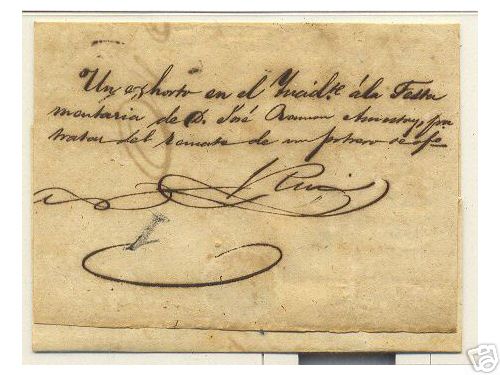 Un exhorto en el Yncid.te á la Testa
mentaria de D. José Ramon por
tratar del remate de un potrero se